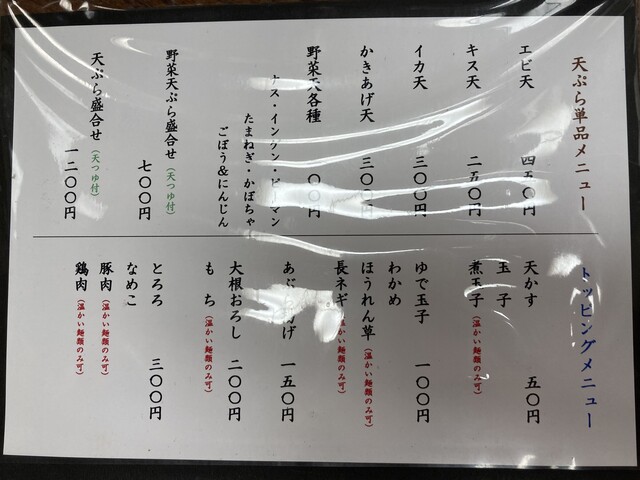 天ぷら単品メニュー
エビ天 四五〇円
キス天 二五〇円
イカ天 三〇〇円
かきあげ天 三〇〇円
野菜天各種 〇〇円
ナス・インゲン・ピーマン
たまねぎ・かぼちゃ
ごぼう&にんじん
野菜天ぷら盛合せ(天つゆ付) 七〇〇円
天ぷら盛合せ(天つゆ付) 一二〇〇円
トッピングメニュー
天かす 五〇円
玉子
煮玉子(温かい麺類のみ可)
ゆで玉子 一〇〇円
わかめ
ほうれん草(温かい麺類のみ可)
長ネギ(温かい麺類のみ可)
あ げ 一五〇円
大根おろし 二〇〇円
もち(温かい麺類のみ可)
とろろ 三〇〇円
なめこ
豚肉(温かい麺類のみ可)
鶏肉(温かい麺類のみ可)